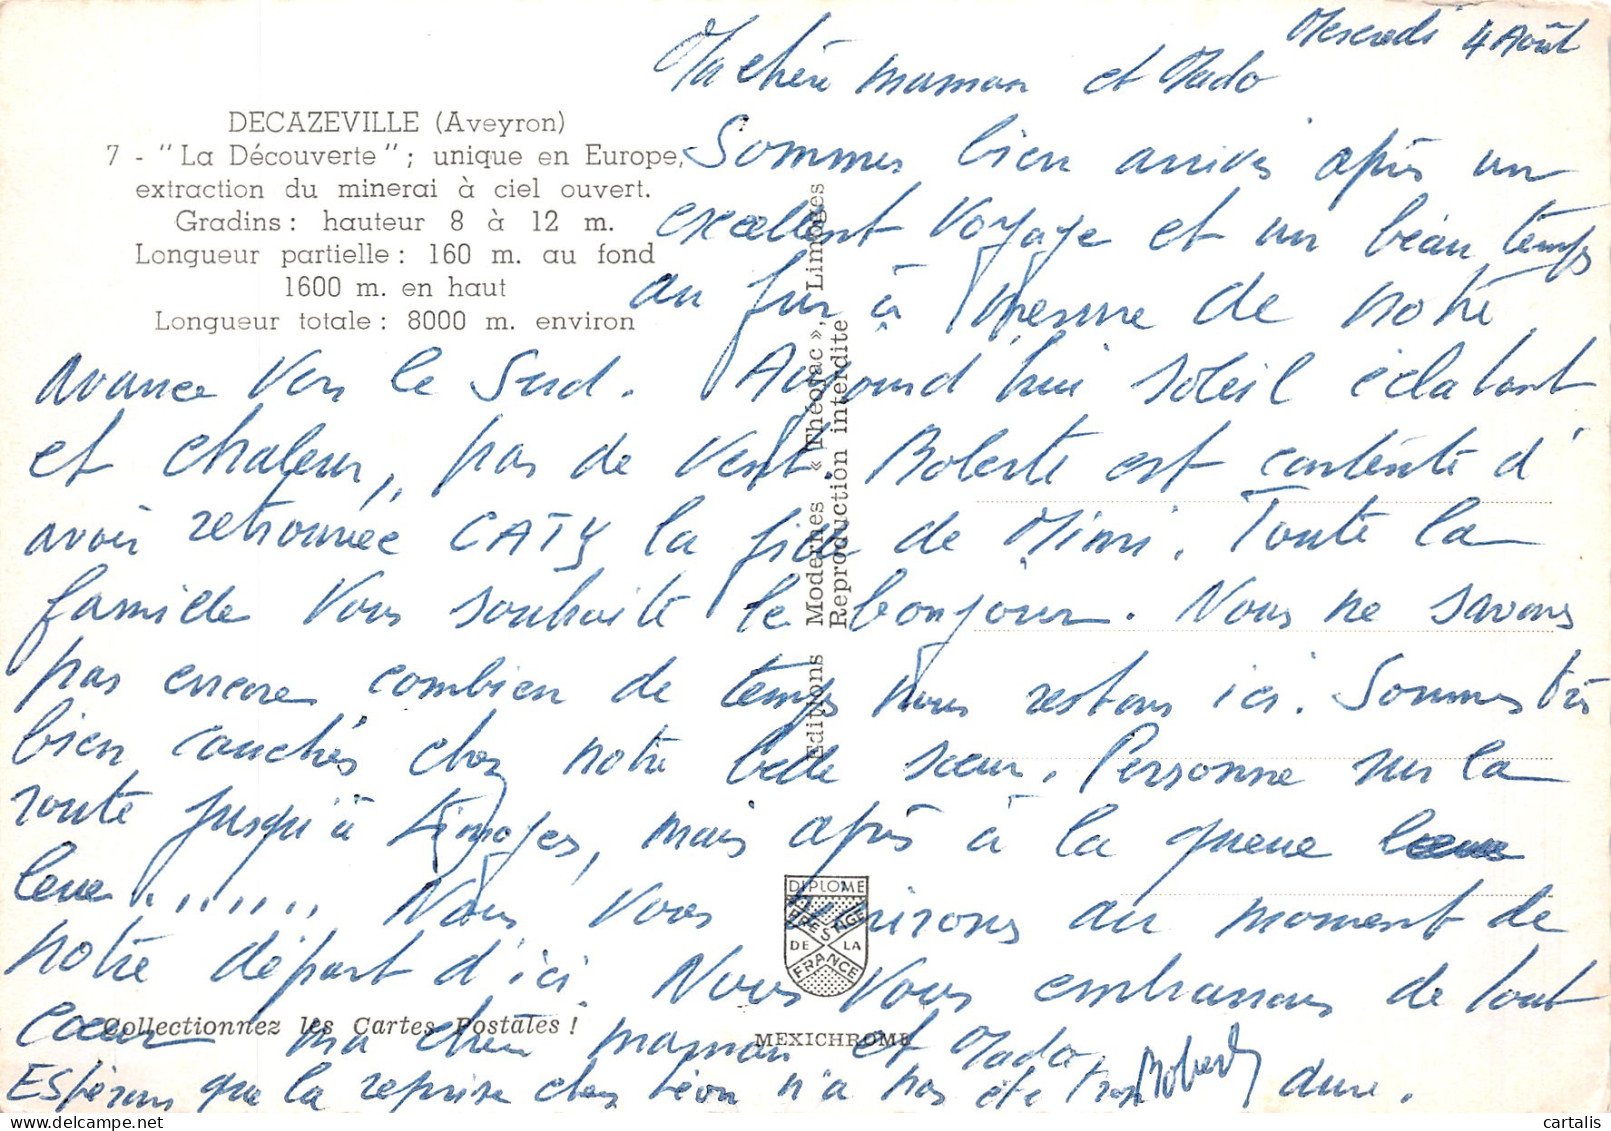 Mercredi 4 Août
Ma chère maman et Mado
DECAZEVILLE (Aveyron)
7 - "La Découverte"; unique en Europe,
extraction du minerai à ciel ouvert.
Gradins : hauteur 8 à 12 m.
Longueur partielle : 160 m. au fond
1600 m. en haut
Longueur totale : 8000 m. environ
Sommes bien arrivés après un
excellent voyage et un beau temps
au fur à mesure de notre
avance vers le Sud. Aujourd'hui soleil éclatant
et chaleur, pas de vent. Roberte est contente d'
avoir retrouvée CATY la fille de Mimi. Toute la
famille vous souhaite le bonjour. Nous ne savons
pas encore combien de temps nous restons ici. Sommes très
bien couchés chez notre belle sœur. Personne sur la
route jusqu'à Limoges, mais après à la queue
leue ........ Nous vous écrirons au moment de
notre départ d'ici. Nous vous embrassons de tout
cœur ma chère maman et Mado
Robert
Espérons que la reprise chez Léon n'a pas été trop dure.
Editions Modernes « Théojac », Limoges
Reproduction interdite
DIPLOME
PRESTIGE
DE LA
FRANCE
Collectionnez les Cartes Postales !
MEXICHROME
cartalis